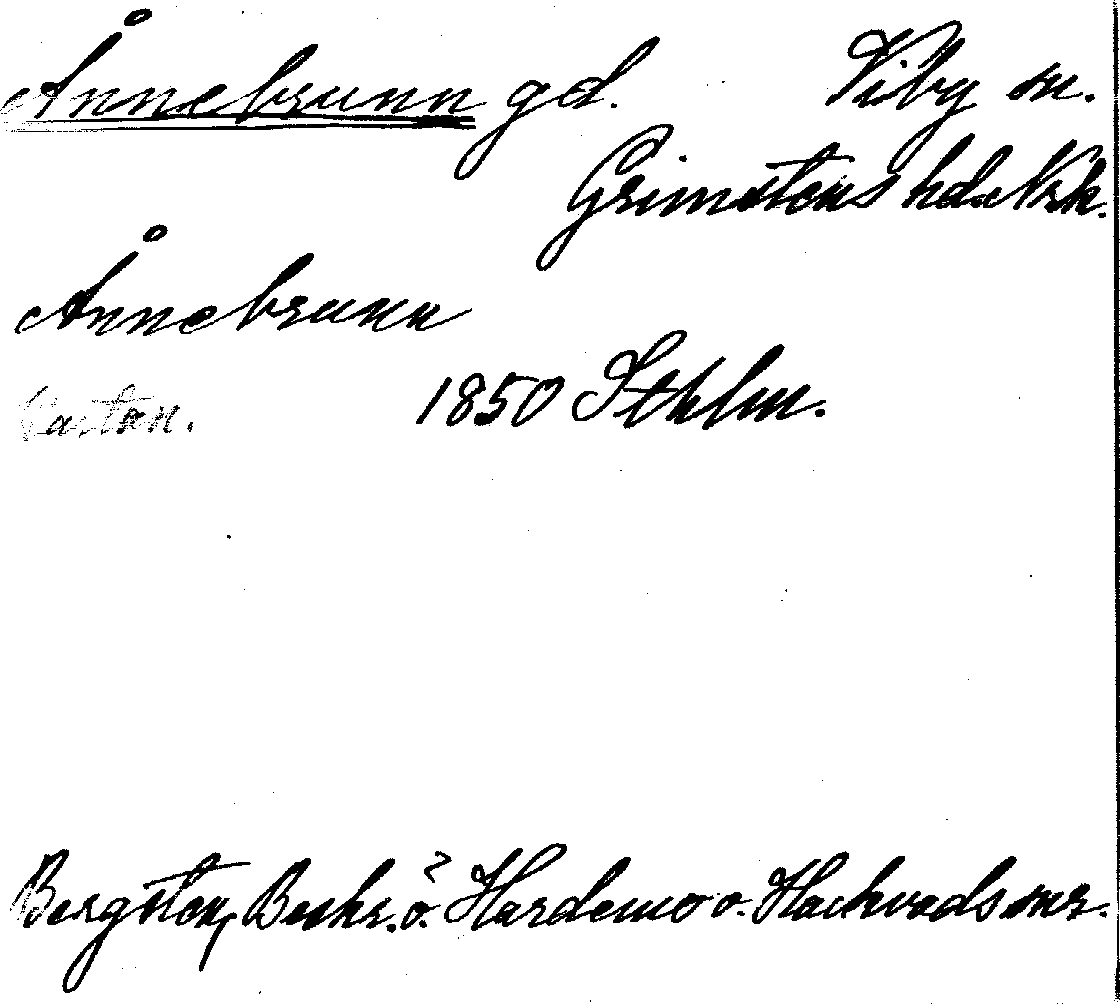 Ånnebrunn gd. Viby sn.
Grimstens hd. Nrk.
Ånnebrunn
Kartan. 1850 Sthlm.
Bergsten, Beskr. ö. Hardemo o. Hackvads snr.